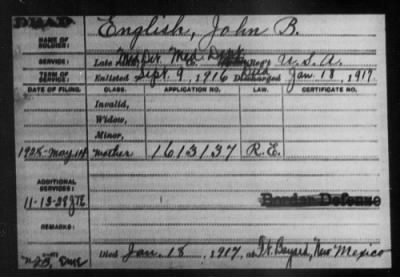 DEAD
NAME OF SOLDIER: English, John B.
SERVICE: Late Det. Med. Dept. U.S.A.
TERM OF SERVICE: Enlisted Sept. 9, 1916 Discharged Died Jan. 18, 1917
DATE OF FILING. CLASS. APPLICATION NO. LAW. CERTIFICATE NO.
Invalid,
Widow,
Minor,
1928-May mother 1613137 R.E.
ADDITIONAL SERVICES:
11-13-28 Border Defense
REMARKS:
Died Jan. 18, 1917, at Ft. Bayard, New Mexico